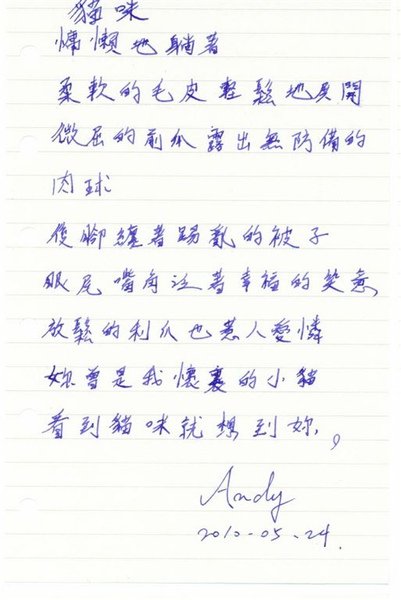 貓咪
慵懶地躺著
柔軟的毛皮輕鬆地展開
微屈的前爪露出無防備的
肉球
後腳纏著踢亂的被子
眼尾嘴角泛著幸福的笑意、
放鬆的利爪也惹人愛憐
妳曾是我懷裏的小貓
看到貓咪就想到妳，
Andy
2010-05-24.